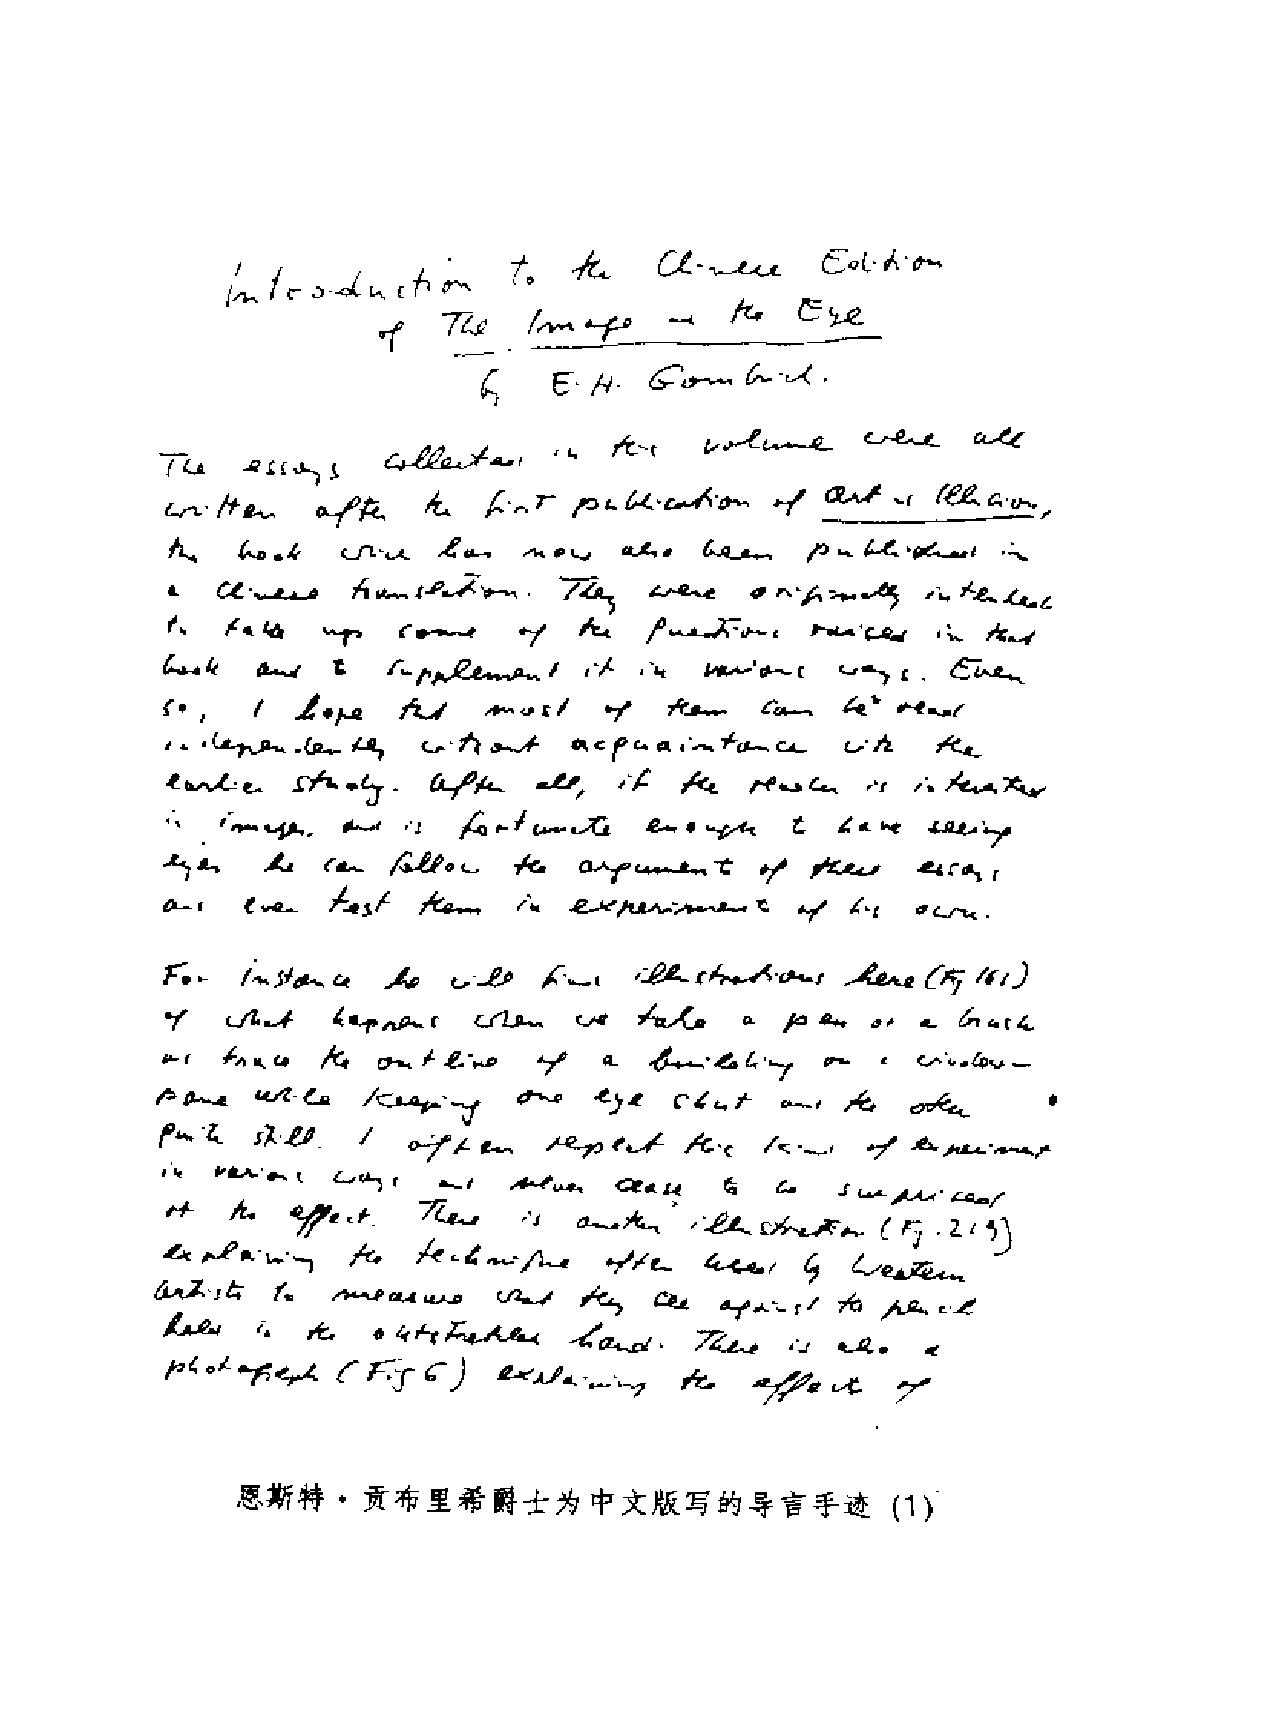 Introduction to the Chinese Edition
of The Image and the Eye
by E. H. Gombrich.
The essays collected in this volume were all
written after the first publication of Art & Illusion,
the book which has now also been published in
a Chinese translation. They were originally intended
to take up some of the questions raised in that
book and to supplement it in various ways. Even
so, I hope that most of them can be read
independently without acquaintance with the
earlier study. After all, if the reader is interested
in images, and is fortunate enough to have seeing
eyes he can follow the argument of these essays
and even test them in experiments of his own.
For instance he will find illustrations here (Fig 161)
of what happens when we take a pen or a brush
and trace the outline of a building on a window-
pane while keeping one eye shut and the other
quite still. I often repeat this kind of experiment
in various ways and never cease to be surprised
at the effect. There is another illustration (Fig. 219)
explaining the technique often used by Western
artists to measure what they see against the pencil
held in the outstretched hand. There is also a
photograph (Fig 6) explaining the effect of
恩斯特·贡布里希爵士为中文版写的导言手迹 (1)